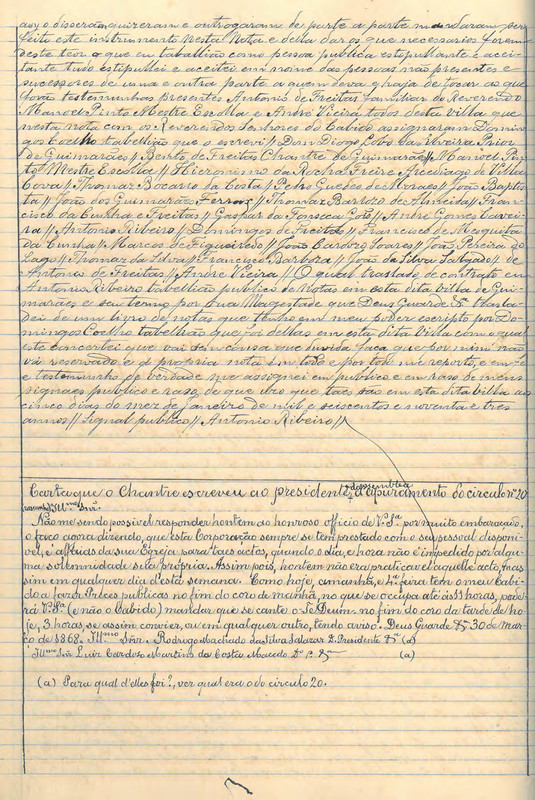 assy o disseram quizeram e outrogaram de parte a parte mandaram ser
feito este instrumento nesta Nota e della dar os que necessarios forem
deste teor o que eu taballião como pessoa publica estipullante e accei-
tante tudo estipullei e aceitei em nome das pessoas não presentes e
sucessores de uma e outra parte a quem deva e haja de tocar ao que
forão testemunhas presentes Antonio de Freitas familiar do Reverendo
Manoel Pinto Mestre Escolla e André Vieira todos desta villa que
nesta nota com os Reverendos Senhores do Cabido assignaram Domin-
gos Coelho tabellião que o escrevi // Dom Diogo Lobo da Silveira Prior
de Guimarães // Bento de Freitas Chantre de Guimarães // Manoel Pin-
to Mestre Escolla // Hieronimo da Rocha Freire Arcediago de Villa
Cova // Thomaz Bocarro da Costa // Pedro Guedes de Moraes // João Baptis-
ta // João dos Guimarães Ferraz // Thomaz Barbozo de Almeida // Fran-
cisco da Cunha e Freitas // Gaspar da Fonseca Coto // André Gomes Tavei-
ra // Antonio Ribeiro // Domingos de Freitas // Francisco de Mesquita
da Cunha // Marcos de Figueiredo // João Cardozo Soares // João Pereira do
Lago // Thomaz da Silva // Francisco Barboza // João da Silva Salgado // de
Antonio de Freitas // André Vieira // O qual traslado de contrato eu
Antonio Ribeiro tabellião publico de Notas em esta dita villa de Gui-
marães e seu termo por Sua Magestade que Deus Guarde &ª traslа-
dei de um livro de notas que tenho em meu poder escripto por Do-
mingos Coelho tabellião que foi dellas em esta dita Villa com o qual
este concertei que vai sem cousa que duvida faça que por mim não
vá reservado e á propria nota em todo e por todo me reporto, e em fé
e testemunho de verdade me assignei em publico e em raso de meus
signaes publico e raso, de que uso que taes são em esta dita villa aos
cinco dias do mez de Janeiro de mil e seiscentos e noventa e tres
annos // Signal publico // Antonio Ribeiro //
Carta que o Chantre escreveu ao presidente da assemblea d'apuramento do circulo nº 20
Illmo Snr.
Não me sendo possivel responder hontem ao honroso officio de V. Sª. por muito embaraçado,
o faço agora dizendo, que esta Corporação sempre se tem prestado com o seu pessoal disponi-
vel, e alfaias da sua Egreja para taes actos, quando o dia, e hora não é impedido por algu-
ma solemnidade sua própria. Assim pois, hontem não era praticavel aquelle acto, mas
sim em qualquer dia d'esta semana. Como hoje, amanhã, e 4ª feira tem o meu Cabi-
do a fazer Preces publicas no fim do coro de manhã, no que se occupa até ás 11 horas, pode-
rá V. Sª. (e não o Cabido) mandar que se cante o Te Deum no fim do coro da tarde de ho-
je, 3 horas, se assim convier, ou em qualquer outro, tendo aviso. Deus Guarde &ª 30 de mar-
ço de 1868. Illmo Snr. Rodrigo Machado da Silva Salazar D. Presidente &ª (a)
Illmo Snr Luiz Cardozo Martins da Costa Macedo Dº P. &ª (a)
(a) Para qual d'elles foi?, ver qual era o do circulo 20.